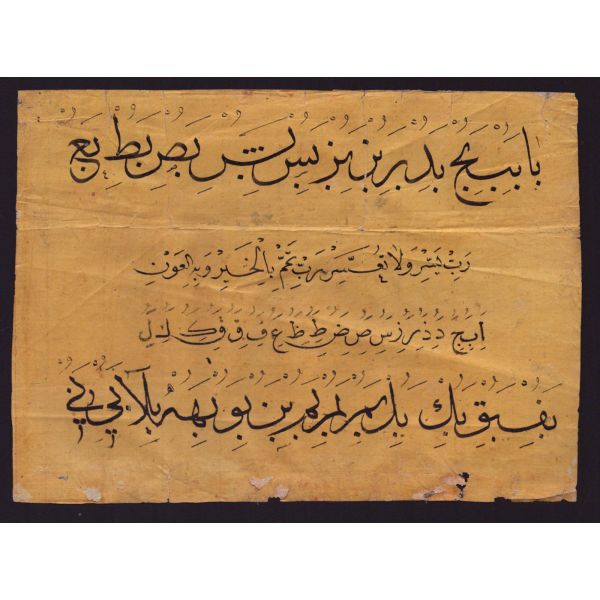 با بب بج بد بر بن بز بس بش بص بط بع
رَبِّ يَسِّرْ وَلَا تُعَسِّرْ رَبِّ تَمِّمْ بِالْخَيْرِ وَبِهِ الْعَوْنِ
ا ب ج د ذ ر ز س ص ض ط ظ ع ف ق ك ل
بف بق بك بل بم بن بو بهه بلا بي